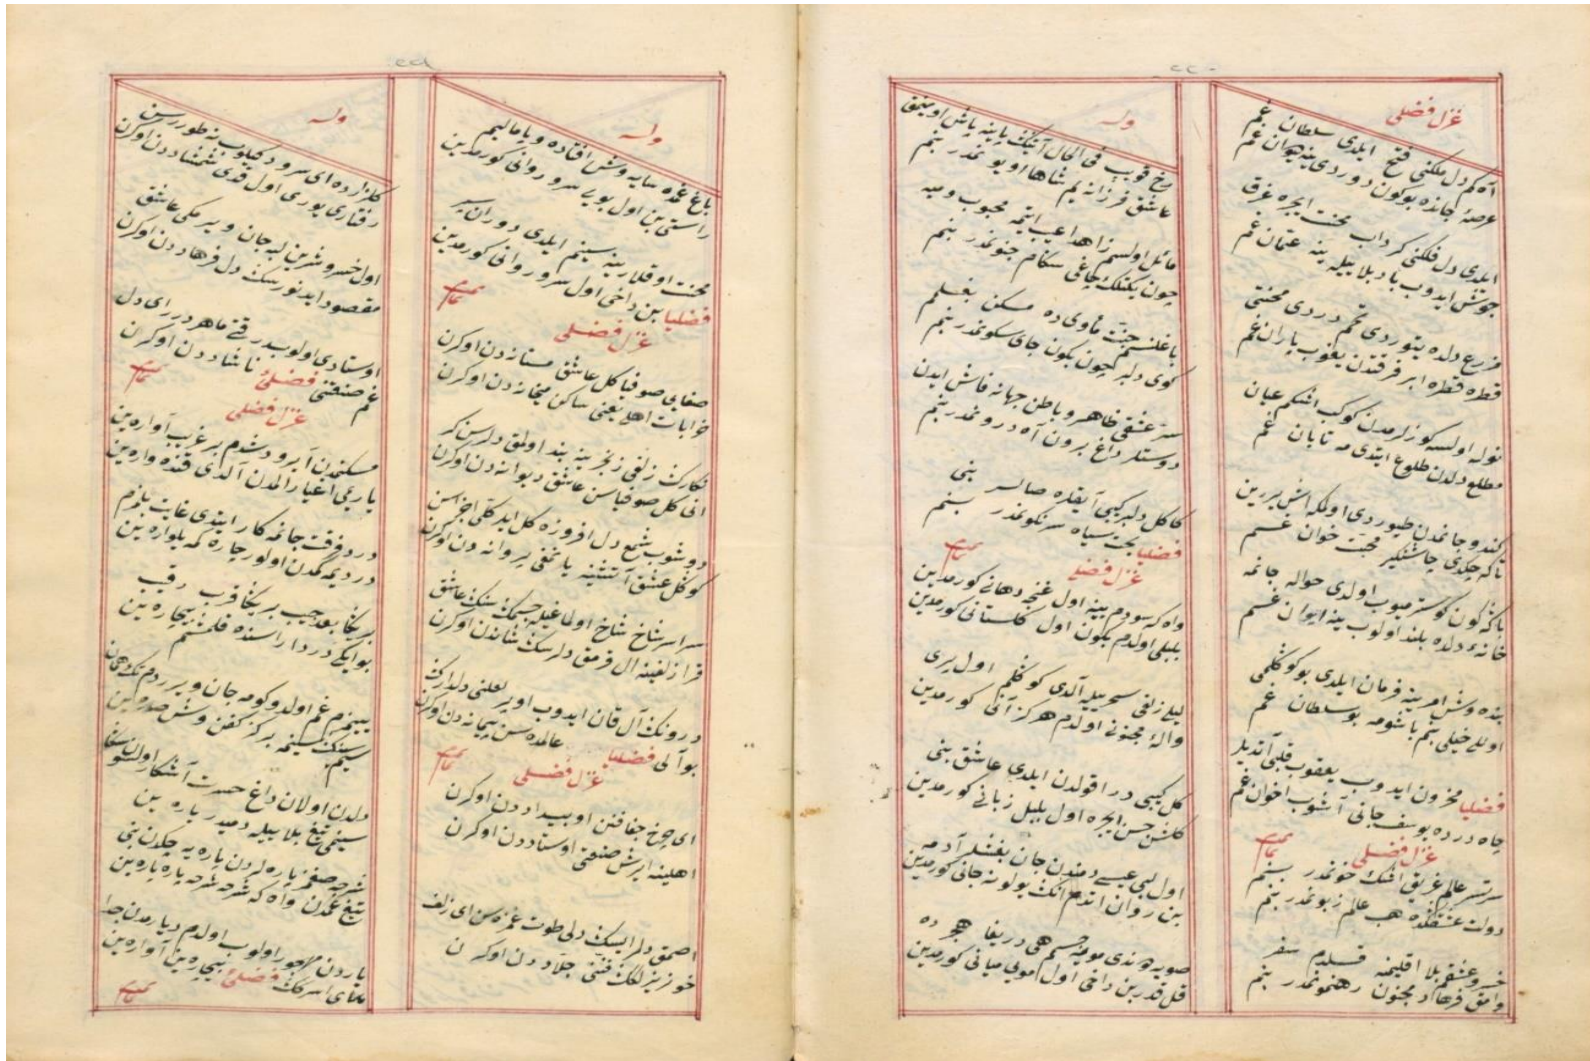 ٢٢٠
غزل فضلی
آه کم دل ملکنی فتح ایلدی سلطان غم
عرصهٔ جانده بوکون دوردی ینه دیوان غم
ایلدی دل فلکنی کرداب محنت ایچره غرق
جوشش ایدوب باد بلا بیله ینه عمان غم
مزارع دلده بتوردی تخم دردی محنتی
قطره قطره ابر فرقتدن یغوب باران غم
نوله اولسه کوزلرمدن کوکب اشکم عیان
مطلع دلدن طلوع ایتدی مه تابان غم
کندو جانمدن طیوردی اولکه آش یرین
تاکه چکدی چاشنیکیر محبت خوان غم
باش کون کوسترمیوب اولدی حواله جانمه
خانهٔ دلده بلند اولوب ینه ایوان غم
بنده وش امرینه فرمان ایلدی بو کوکلمی
اولی خیلی بنم باشومه بو سلطان غم
فضلیا محزون ایدوب یعقوب قلبی آندیلر
چاه درده یوسف جانی آشوب اخوان غم
تمام
غزل فضلی
سرتسر عالم غریق اشک خونمدر بنم
دولت عشقکده هب عالم زبونمدر بنم
خسرو عشقم بلا اقلیمنه قلدم سفر
وامق فرهاد مجنون رهنمونمدر بنم
وله
رخ قویب فی الحال آنیک پاینه باش اویمق
عاشق فرزانه یم شاها اویونمدر بنم
مائل اولسم زاهدا عیب ایتمه محبوب و میه
چون یکتلک چاغی هنکام جنونمدر بنم
باغلنسم جنت مأوی ده مسکن بغلمم
کوی دلبر چون بکون جای سکونمدر بنم
سر عشقی ظاهر و باطن جهانه فاش ایدن
دوستلر داغ برون آه درونمدر بنم
کاکل دلبر کیبی آیقده صالر بنی
فضلیا بخت سیاه سرنکونمدر بنم
تمام
غزل فضلی
واه که سودم ینه اول غنچه دهانی کورمدین
بلبلی اولدم بکون اول کلستانی کورمدین
لیلی زلفی سحریله آلدی کوکلم اول پری
والهٔ مجنونی اولدم هرکز آنی کورمدین
کل کیبی در اقولدن ایلدی عاشق بنی
کلشن حسن ایچره اول بلبل زبانی کورمدین
اول لبی عیسی دمندن جان بغشلر آدمه
بن روان ایتدم آنک یولونه جانی کورمدین
صویه دوندی مویه جسمم هی دریغا هجرده
قل قدر بن داخی اول مویی میانی کورمدین
٢٢١
وله
باغ غمده سایه وش افتاده و پامالیم
راستی بن اول بویی سرو روانی کورمدین
محنت اوقلارینه سینم ایلدی دوران سپر
فضلیا بن داخی اول سرو روانی کورمدین
تمام
غزل فضلی
صفایی صوفیا کل عاشق مستانه دن اوکرن
خرابات اهلی یعنی ساکن میخانه دن اوکرن
نکارک زلفی زنجیرینه بند اولمق دلرسن کر
انی کل صوفیاسن عاشق دیوانه دن اوکرن
دوشوب شمع دل افروزه کل ایدکلی اجزاسن
کوکل عشق آتشینه یانمغی پروانه دن اوکرن
سراسر شاخ شاخ اولماغیله جسمک سنک عاشق
قرا زلفینه ال قرمق دلرسک شانه دن اوکرن
درونک آل قان ایدوب اوپر لعلنی دلدارک
بو آلی فضلیا عالمده سن پیمانه دن اوکرن
تمام
غزل فضلی
ای چرخ جفا فنن او بیداددن اوکرن
اهلینه ایرش صنعتی استاددن اوکرن
اصمق دلرایسک دلی طوت غمزه سن ای زلف
خونریزلک فننی جلاددن اوکرن
وله
کلزارده ای سرو دکیلوب نه طوررسن
رفتاری یوری اول قدی شمشاددن اوکرن
اول خسرو شیرین لبه جان ویرمکی عاشق
مقصود ایدنورسک دل فرهاددن اوکرن
اوستادی اولوبدر قتی ماهردر ای دل
غم صنعتنی فضلیٔ ناشاددن اوکرن
تمام
غزل فضلی
مسکنمدن آیرو دشدم بر غریب آواره ین
یارمی اغیار المدن آلدی قنده واره ین
درد فرقت جانمه کار ایتدی غایت یلزم
دردیمه کمدن اولور چاره کمه یلواره ین
بر یکا بعد حبیب بر یکا قرب رقیب
بو ایکی درد اراسنده قلمشم بیچاره ین
یبنزم غم اولدوکومه جان ویررم تک همان
سیم سینک سینمه بر کز کفن وش صره ین
دلدن اولان داغ حسرت آشکار اولسون سکا
سینمی تیغ بلا بیله دمیدر یاره ین
شرحه صغمز یاره لردن یاره یه چکدن بنی
تیغ غمدن واه که شرحه شرحه یاره یاره ین
یاردن مهجور اولوب اولدم دیارمدن جدا
فضلیٔ بیچاره ین آواره ین
تمام